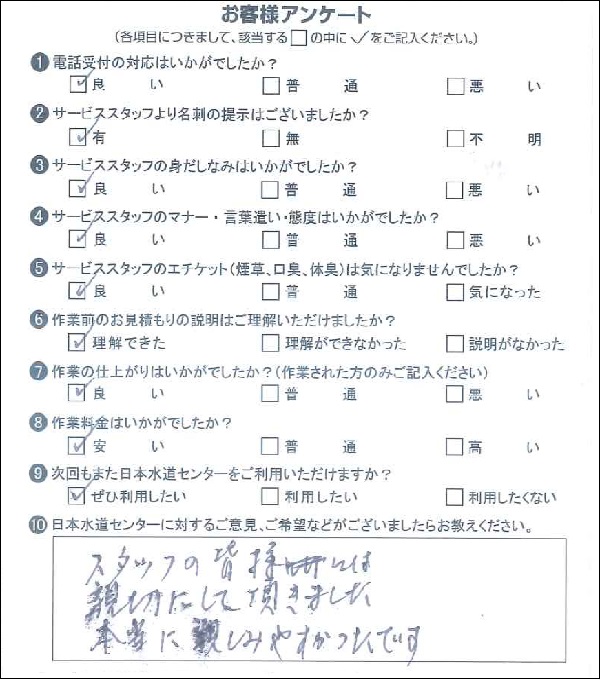 お客様アンケート
(各項目につきまして、該当する□の中に✓をご記入ください。)
❶電話受付の対応はいかがでしたか？
☑良い □普通 □悪い
❷サービススタッフより名刺の提示はございましたか？
☑有 □無 □不明
❸サービススタッフの身だしなみはいかがでしたか？
☑良い □普通 □悪い
❹サービススタッフのマナー・言葉遣い・態度はいかがでしたか？
☑良い □普通 □悪い
❺サービススタッフのエチケット(煙草、口臭、体臭)は気になりませんでしたか？
☑良い □普通 □気になった
❻作業前のお見積もりの説明はご理解いただけましたか？
☑理解できた □理解ができなかった □説明がなかった
❼作業の仕上がりはいかがでしたか？(作業された方のみご記入ください)
☑良い □普通 □悪い
❽作業料金はいかがでしたか？
☑安い □普通 □高い
❾次回もまた日本水道センターをご利用いただけますか？
☑ぜひ利用したい □利用したい □利用したくない
❿日本水道センターに対するご意見、ご希望などがございましたらお教えください。
スタッフの皆様には
親切にして頂きました
本当に親しみやすかったです